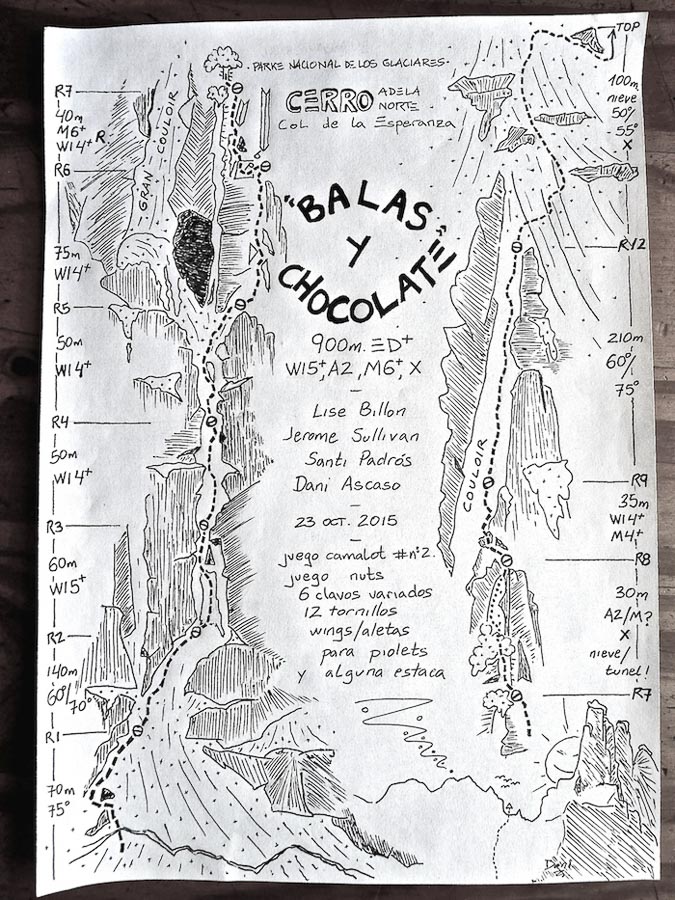 · PARKE NACIONAL DE LOS GLACIARES ·
CERRO ADELA NORTE
Col de la Esperanza
"BALAS
Y
CHOCOLATE"
900m. ED+
WI5+, A2, M6+, X
Lise Billon
Jerome Sullivan
Santi Padrós
Dani Ascaso
23 oct. 2015
juego camalot #nº2.
juego nuts
6 clavos variados
12 tornillos
wings/aletas
para piolets
y alguna estaca
R7
40m
M6+
WI4+ R
R6
75m
WI4+
R5
50m
WI4+
R4
50m
WI4+
R3
60m
WI5+
R2
140m
60º/
70º
R1
70m
75º
GRAN COULOIR
TOP
100m
nieve
50º/
55º
X
R12
210m
60º/
75º
R9
35m
WI4+
M4+
R8
30m
A2/M?
X
nieve/
tunel!
R7
COULOIR
Dani